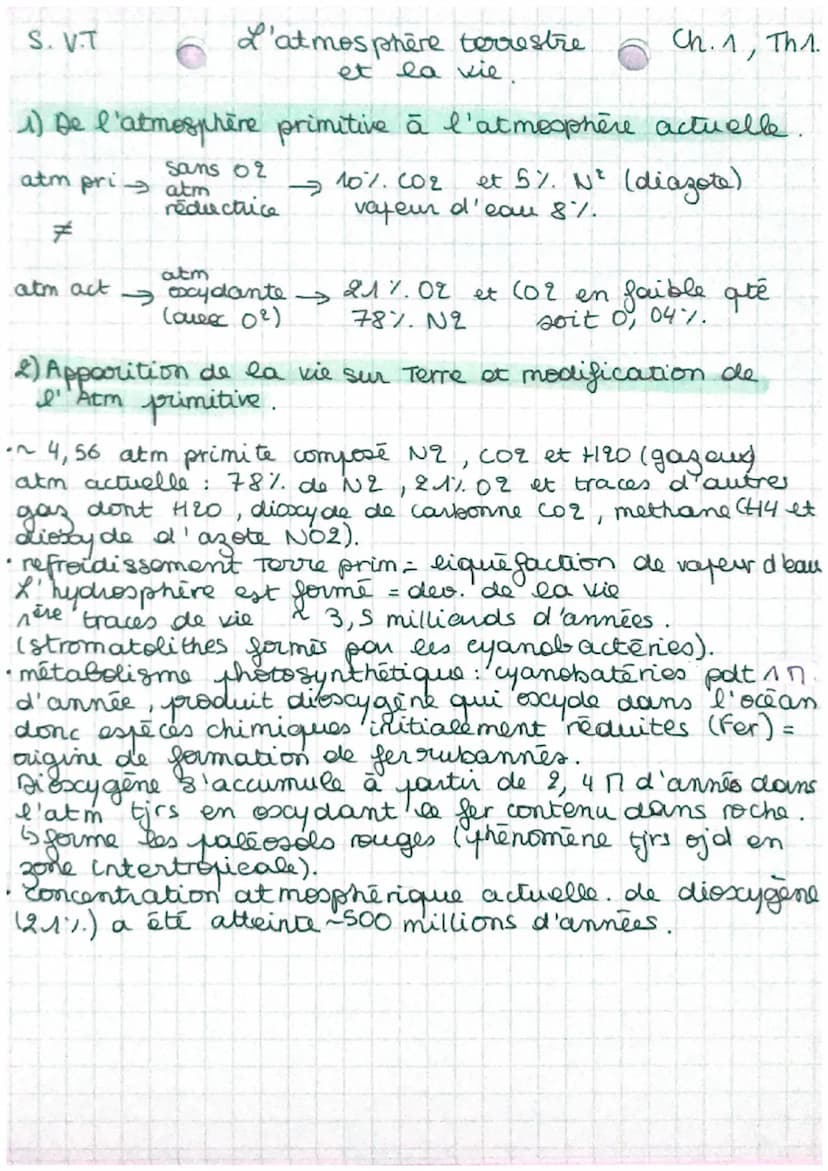 S. V.T L'atmosphère terrestre Ch. 1, Th1.
et la vie.
1) De l'atmosphère primitive à l'atmosphère actuelle.
atm pri → sans O2 → 10% CO2 et 5% N² (diazote)
atm
réductrice vapeur d'eau 8%.
≠
atm act → atm
oxydante → 21% O2 et CO2 en faible qté
(avec O²) 78% N2 soit 0,04%.
2) Apparition de la vie sur Terre et modification de
l'Atm primitive.
•~ 4,56 atm primite composé N2, CO2 et H2O (gazeux)
atm actuelle : 78% de N2, 21% O2 et traces d'autres
gaz dont H2O, dioxyde de carbonne CO2, methane CH4 et
dioxyde d'azote NO2).
• refroidissement Terre prim = liquéfaction de vapeur d'eau
L'hydrosphère est formé = dev. de la vie
1ère traces de vie ~ 3,5 milliards d'années.
(stromatolithes formés par les cyanobactéries).
• métabolisme photosynthétique : cyanobatéries pdt 1 M
d'année, produit dioxygène qui oxyde dans l'océan
donc espèces chimiques initialement réduites (Fer) =
origine de formation de fer rubannés.
Dioxygène s'accumule à partir de 2,4 M d'annés dans
l'atm tjrs en oxydant le fer contenu dans roche.
↳ forme les paléosols rouges (phénomène tjrs ojd en
zone intertropicale).
• Concentration atmosphérique actuelle. de dioxygène
(21%.) a été atteinte ~500 millions d'années.